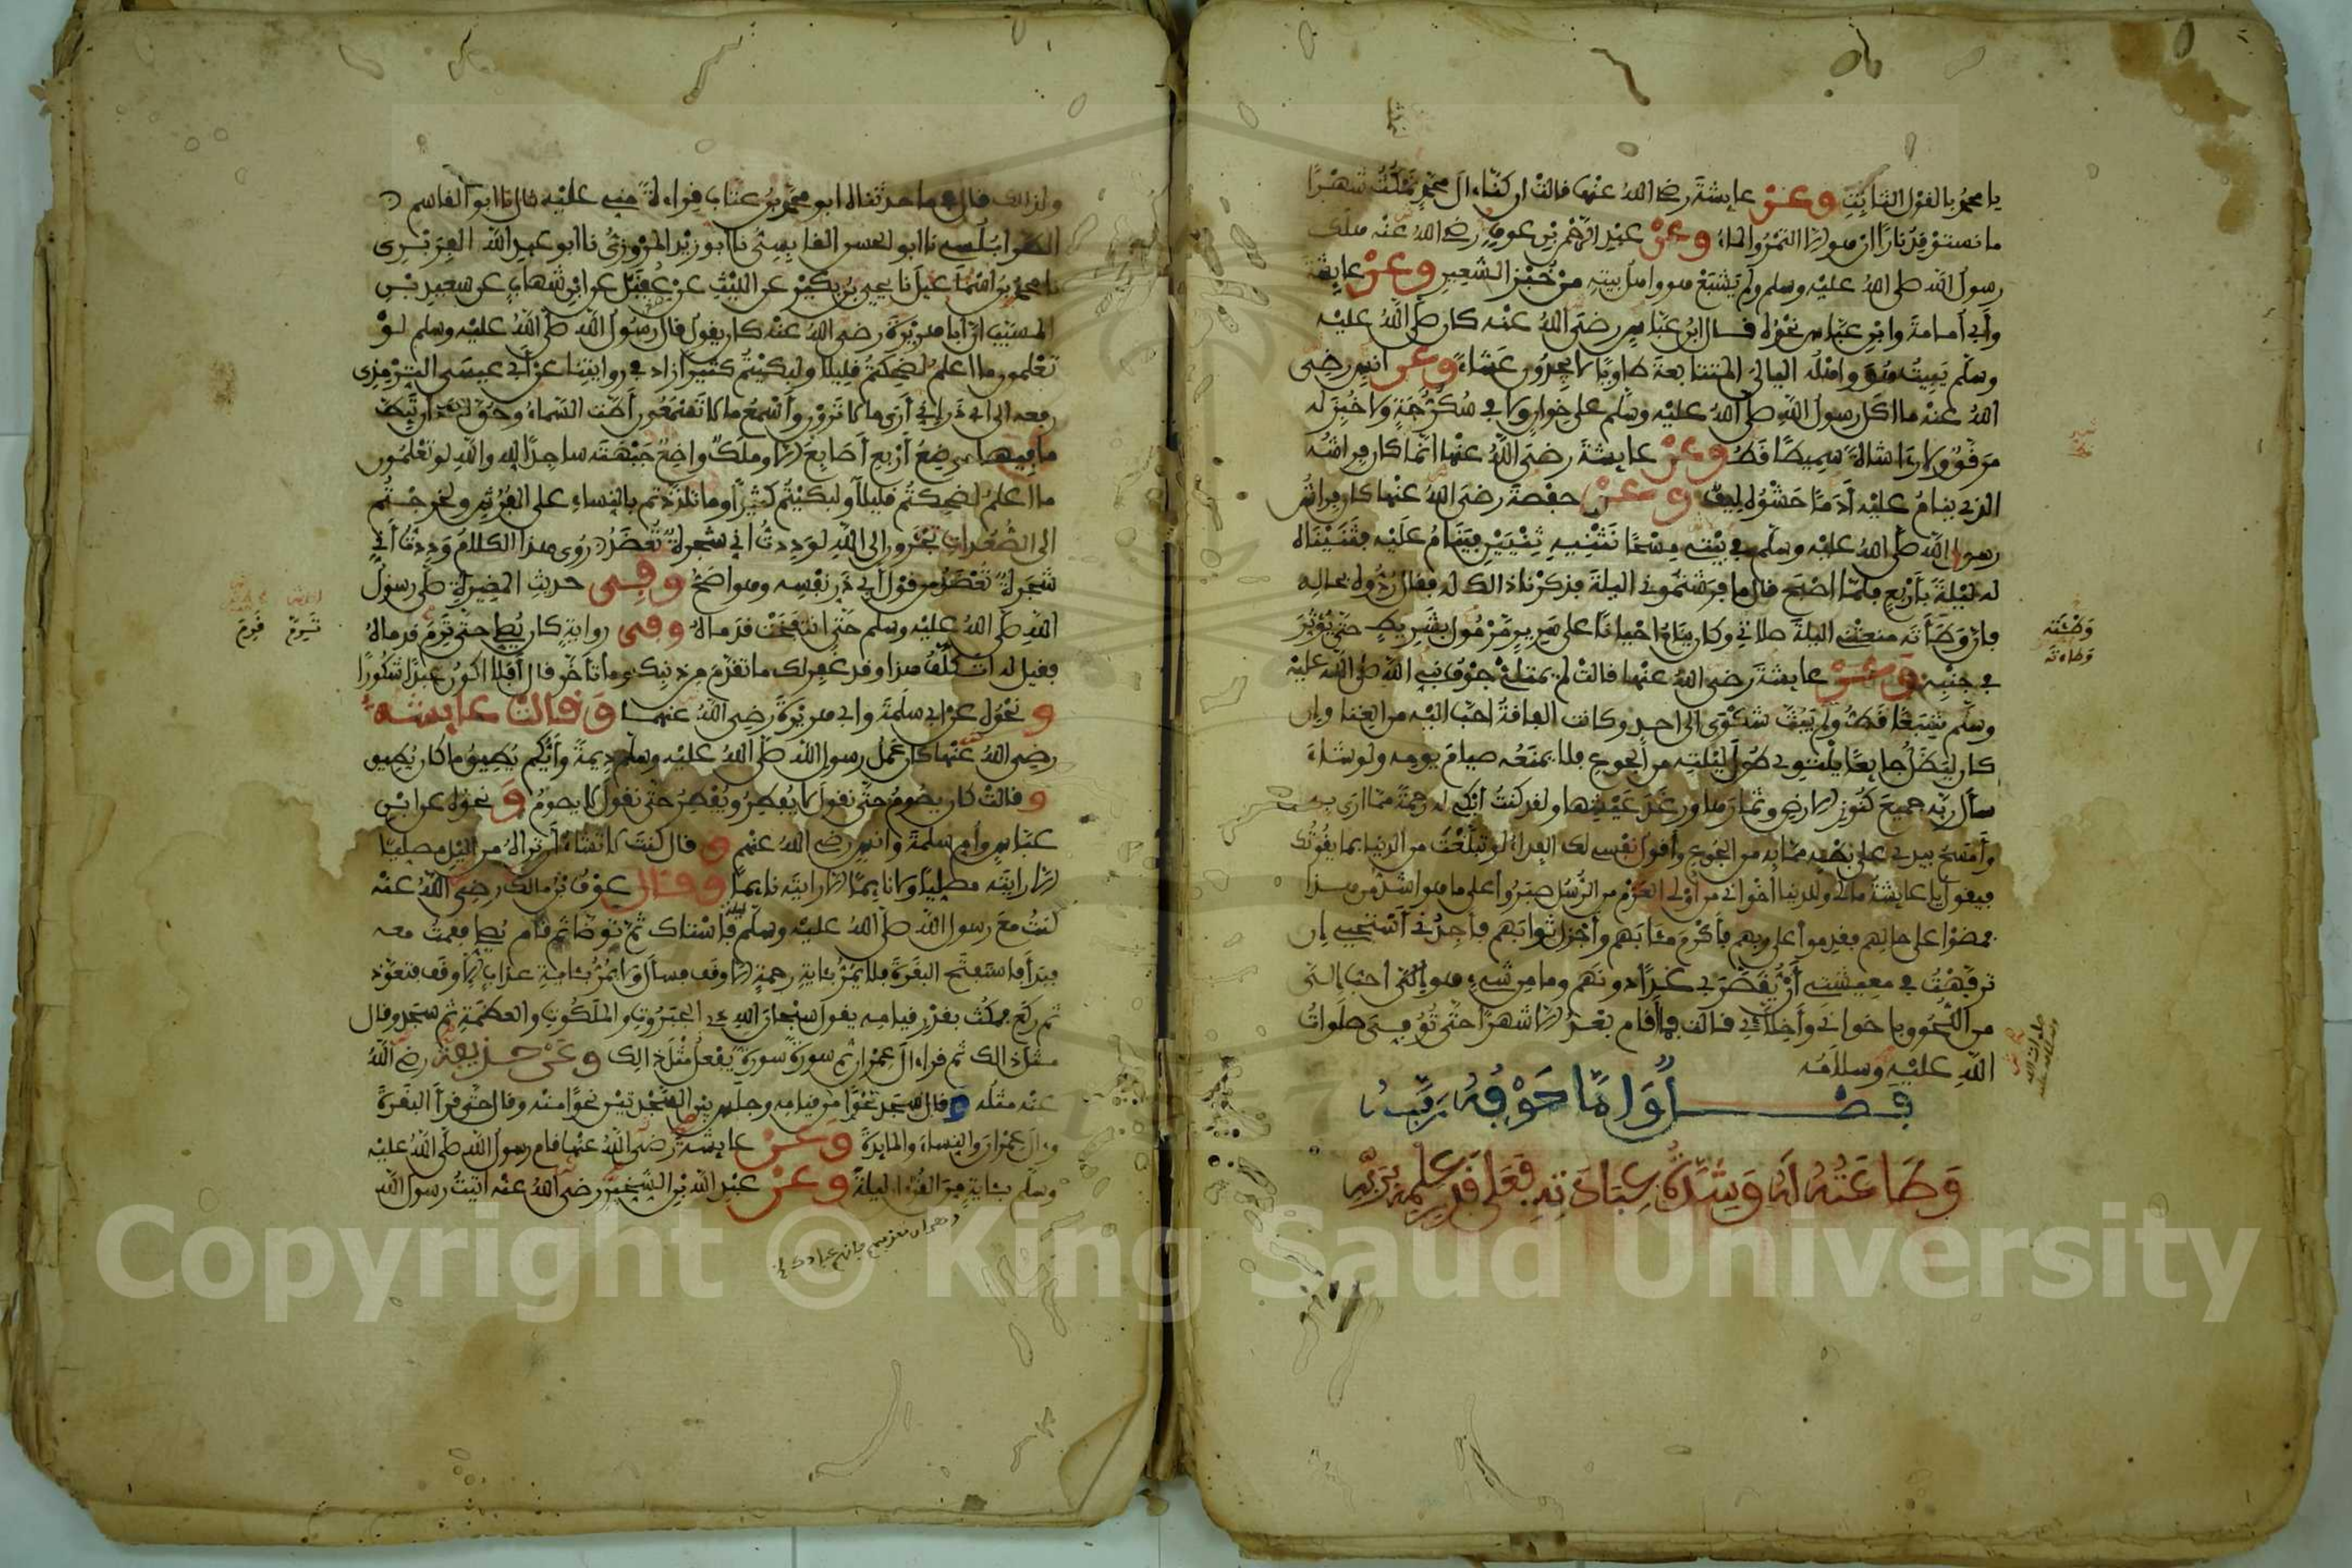 يا محمد بالقول الثابت وعن عايشة رضي الله عنها قالت ان كنا ءال محمد لنمكث شهرا
ما نستوقد نارا ان هو الا التمر والماء وعن عبد الرحمن بن عوف رضي الله عنه هلك
رسول الله صلى الله عليه وسلم ولم يشبع هو واهل بيته من خبز الشعير وعن عايشة
وأبي أمامة وابن عباس نحوه قال ابن عباس رضي الله عنه كان صلى الله عليه
وسلم يبيت هو وأهله الليالي المتتابعة طاويا لا يجدون عشاء وعن انس رضي
الله عنه ما أكل رسول الله صلى الله عليه وسلم على خوان ولا في سكرجة ولا خبز له
مرقق ولا رءا شاة سميطا قط وعن عايشة رضي الله عنها انما كان فراشه
الذي ينام عليه أدما حشوه ليف وعن حفصة رضي الله عنها كان فراش
رسول الله صلى الله عليه وسلم في بيته مسحا نثنيه ثنيين فينام عليه فثنيناه
له ليلة بأربع فلما اصبح قال ما فرشتموني الليلة فذكرنا ذالك له فقال ردوه بحاله
فإن وطأته منعتني الليلة صلاتي وكان ينام احيانا على سرير مرمول بشريط حتى يؤثر
في جنبه وعن عايشة رضي الله عنها قالت لم يمتلئ جوف نبي الله صلى الله عليه
وسلم شبعا قط ولم يبث شكوى الى احد وكانت الفاقة احب اليه من الغنا وإن
كان ليظل جايعا يلتوي طول ليلته من الجوع فلا يمنعه صيام يومه ولو شاء
سأل ربه جميع كنوز الارض وثمارها ورغد عيشها ولقد كنت أبكي له رحمة مما ارى به
وأمسح بيدي على بطنه مما به من الجوع وأقول نفسي لك الفداء لو تبلغت من الدنيا بما يقوتك
فيقول يا عايشة مالي وللدنيا اخواني من أولي العزم من الرسل صبروا على ما هو اشد من هذا
فمضوا على حالهم فقدموا على ربهم فأكرم مئابهم وأجزل ثوابهم فأجدني أستحيي إن
ترفهت في معيشتي أن يقصر بي غدا دونهم وما من شيء هو إلي أحب إلي
من اللحوق باخواني وأخلائي قالت فما أقام بعد الا شهرا حتى توفي صلوات
الله عليه وسلامه
فصل وأما خوفه ربه
وطاعته له وشدة عبادته فعلى قدر علمه بربه
وطئته
وطاءته
صلوات الله
وسلامه عليه
ولذالك قال فيما حدثناه ابو محمد بن عتاب قراءة مني عليه قال نا ابو القاسم
الطرابلسي نا ابو الحسن القابسي نا ابو زيد المروزي نا ابو عبد الله الفربري
نا محمد بن اسماعيل نا يحيى بن بكير عن الليث عن عقيل عن ابن شهاب عن سعيد بن
المسيب ان أبا هريرة رضي الله عنه كان يقول قال رسول الله صلى الله عليه وسلم لو
تعلمون ما أعلم لضحكتم قليلا ولبكيتم كثيرا زاد في روايتنا عن أبي عيسى الترمذي
رفعه الى ابي ذر إني أرى ما لا ترون وأسمع ما لا تسمعون أطت السماء وحق لها ان تيط
ما فيها موضع أربع أصابع الا وملك واضع جبهته ساجدا لله والله لو تعلمون
ما أعلم لضحكتم قليلا ولبكيتم كثيرا وما تلذذتم بالنساء على الفرش ولخرجتم
الى الصعدات تجئرون إلى الله لوددت أني شجرة تعضد روي هذا الكلام وددت أني
شجرة تعضد من قول أبي ذر نفسه وهو اصح وفي حديث المغيرة صلى رسول
الله صلى الله عليه وسلم حتى انتفخت قدماه وفي رواية كان يصلي حتى ترم قدماه
فقيل له اتكلف هذا وقد غفر لك ما تقدم من ذنبك وما تأخر قال أفلا اكون عبدا شكورا
ونحوه عن ابي سلمة وابي هريرة رضي الله عنهما وقالت عايشة
رضي الله عنها كان عمل رسول الله صلى الله عليه وسلم ديمة وأيكم يطيق ما كان يطيق
وقالت كان يصوم حتى نقول لا يفطر ويفطر حتى نقول لا يصوم ونحوه عن ابن
عباس وأم سلمة وانس رضي الله عنهم وقال كنت لا تشاء أن تراه من الليل مصليا
الا رايته مصليا ولا نايما الا رايته نايما وقال عوف بن مالك رضي الله عنه
كنت مع رسول الله صلى الله عليه وسلم ليلة فاستاك ثم توضأ ثم قام يصلي فقمت معه
فبدأ فاستفتح البقرة فلا يمر بئاية رحمة الا وقف فسأل ولا يمر بئاية عذاب الا وقف فتعوذ
ثم ركع فمكث بقدر قيامه يقول سبحان الله ذي الجبروت والملكوت والعظمة ثم سجد وقال
مثل ذالك ثم قرأ ءال عمران ثم سورة سورة يفعل مثل ذالك وعن حذيفة رضي الله
عنه مثله وقال سجد نحوا من قيامه وجلس بين السجدتين نحوا منه وقال حتى قرأ البقرة
وءال عمران والنساء والمايدة وعن عايشة رضي الله عنها قام رسول الله صلى الله عليه
وسلم بئاية من القرءان ليلة وعن عبد الله بن الشخير رضي الله عنه اتيت رسول الله
Copyright © King Saud University